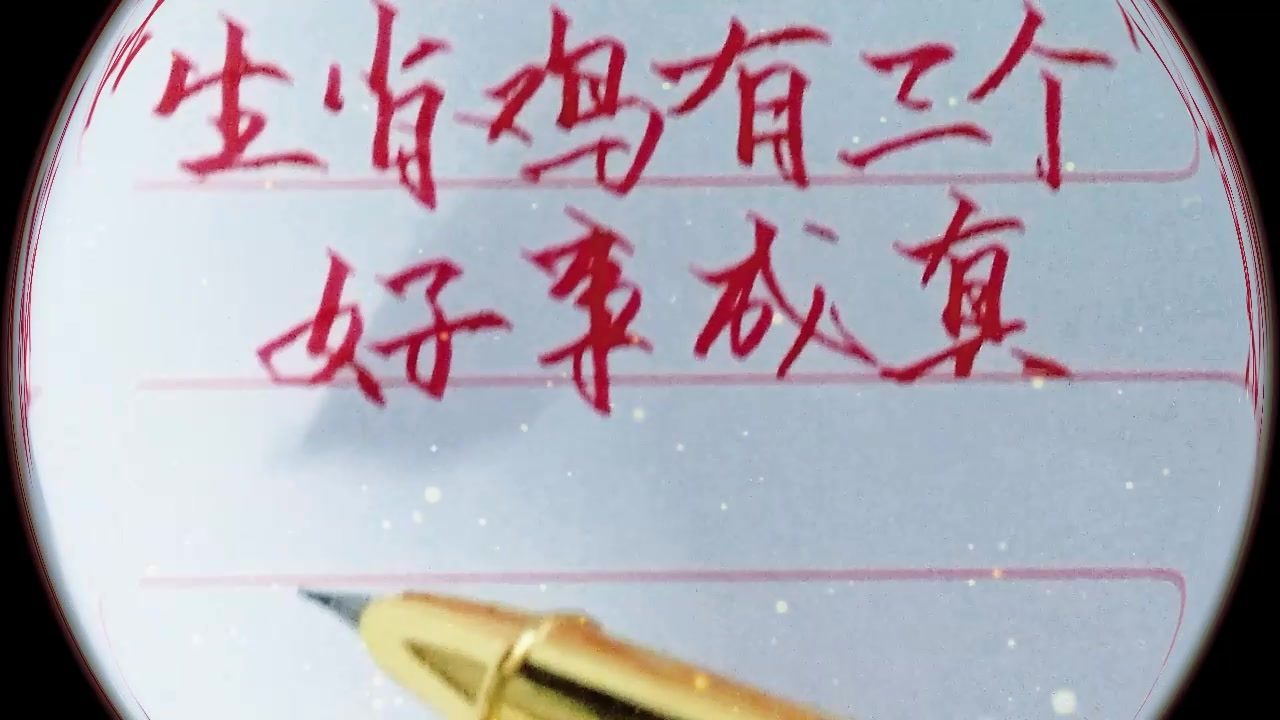 生肖鸡有三个
好事成真